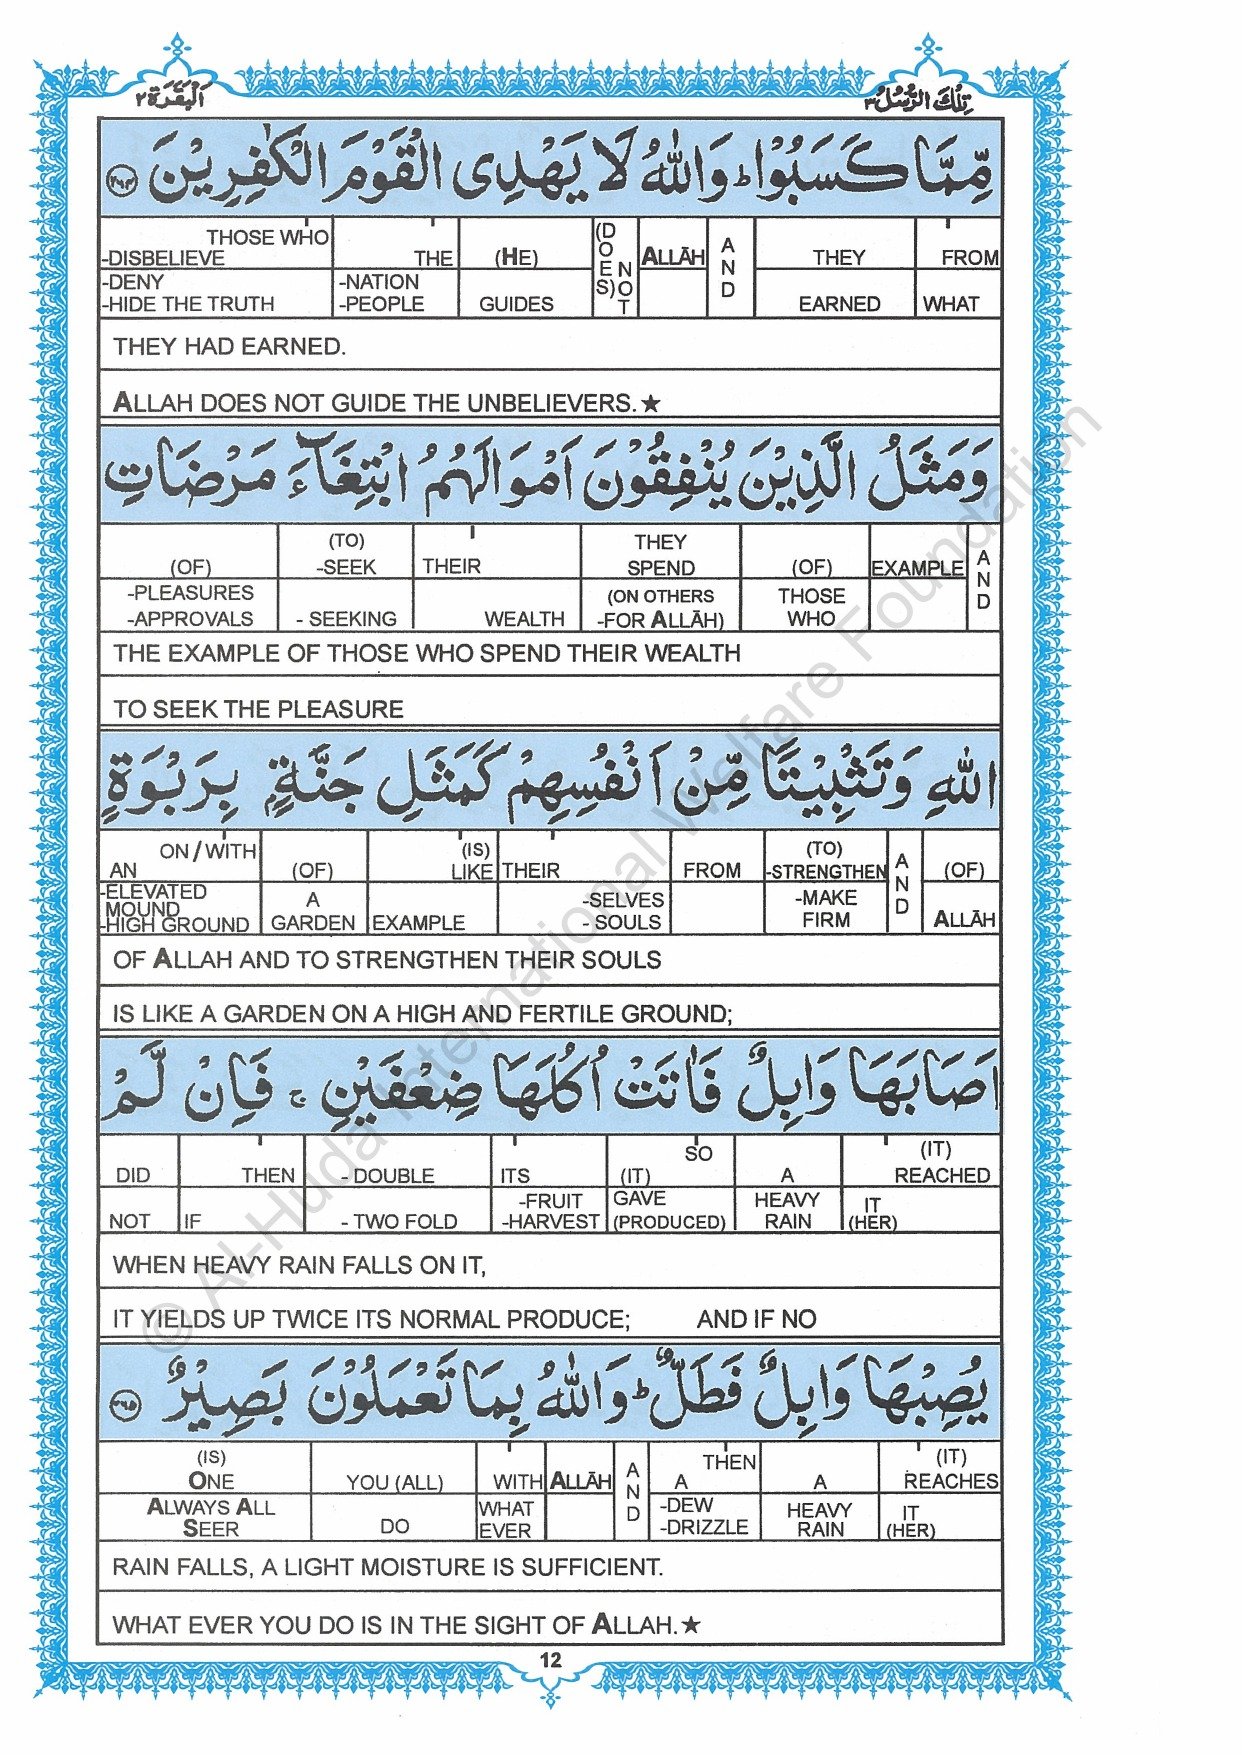 اَلْبَقَرَة ٢
تِلْكَ الرُّسُلُ ٣
مِّمَّا كَسَبُوْا ؕ وَاللّٰهُ لَا يَهْدِى الْقَوْمَ الْكٰفِرِيْنَ ﴿٢٦٤﴾
THOSE WHO -DISBELIEVE -DENY -HIDE THE TRUTH | THE -NATION -PEOPLE | (HE) GUIDES | (DOES) NOT | ALLĀH | AND | THEY EARNED | FROM WHAT
THEY HAD EARNED.
ALLAH DOES NOT GUIDE THE UNBELIEVERS.★
وَمَثَلُ الَّذِيْنَ يُنْفِقُوْنَ اَمْوَالَهُمُ ابْتِغَآءَ مَرْضَاتِ
(OF) -PLEASURES -APPROVALS | (TO) -SEEK - SEEKING | THEIR WEALTH | THEY SPEND (ON OTHERS -FOR ALLĀH) | (OF) THOSE WHO | EXAMPLE | AND
THE EXAMPLE OF THOSE WHO SPEND THEIR WEALTH
TO SEEK THE PLEASURE
اللّٰهِ وَتَثْبِيْتًا مِّنْ اَنْفُسِهِمْ كَمَثَلِ جَنَّةٍۭ بِرَبْوَةٍ
ON/WITH AN -ELEVATED MOUND -HIGH GROUND | (OF) A GARDEN | (IS) LIKE EXAMPLE | THEIR -SELVES - SOULS | FROM | (TO) -STRENGTHEN -MAKE FIRM | AND | (OF) ALLĀH
OF ALLAH AND TO STRENGTHEN THEIR SOULS
IS LIKE A GARDEN ON A HIGH AND FERTILE GROUND;
اَصَابَهَا وَابِلٌ فَاٰتَتْ اُكُلَهَا ضِعْفَيْنِ ۚ فَاِنْ لَّمْ
DID NOT | THEN IF | - DOUBLE - TWO FOLD | ITS -FRUIT -HARVEST | SO (IT) GAVE (PRODUCED) | A HEAVY RAIN | (IT) REACHED IT (HER)
WHEN HEAVY RAIN FALLS ON IT,
IT YIELDS UP TWICE ITS NORMAL PRODUCE; AND IF NO
يُصِبْهَا وَابِلٌ فَطَلٌّ ؕ وَاللّٰهُ بِمَا تَعْمَلُوْنَ بَصِيْرٌ ﴿٢٦٥﴾
(IS) ONE ALWAYS ALL SEER | YOU (ALL) DO | WITH WHAT EVER | ALLĀH | AND | THEN A -DEW -DRIZZLE | A HEAVY RAIN | (IT) REACHES IT (HER)
RAIN FALLS, A LIGHT MOISTURE IS SUFFICIENT.
WHAT EVER YOU DO IS IN THE SIGHT OF ALLAH.★
12
© Al-Huda International Welfare Foundation